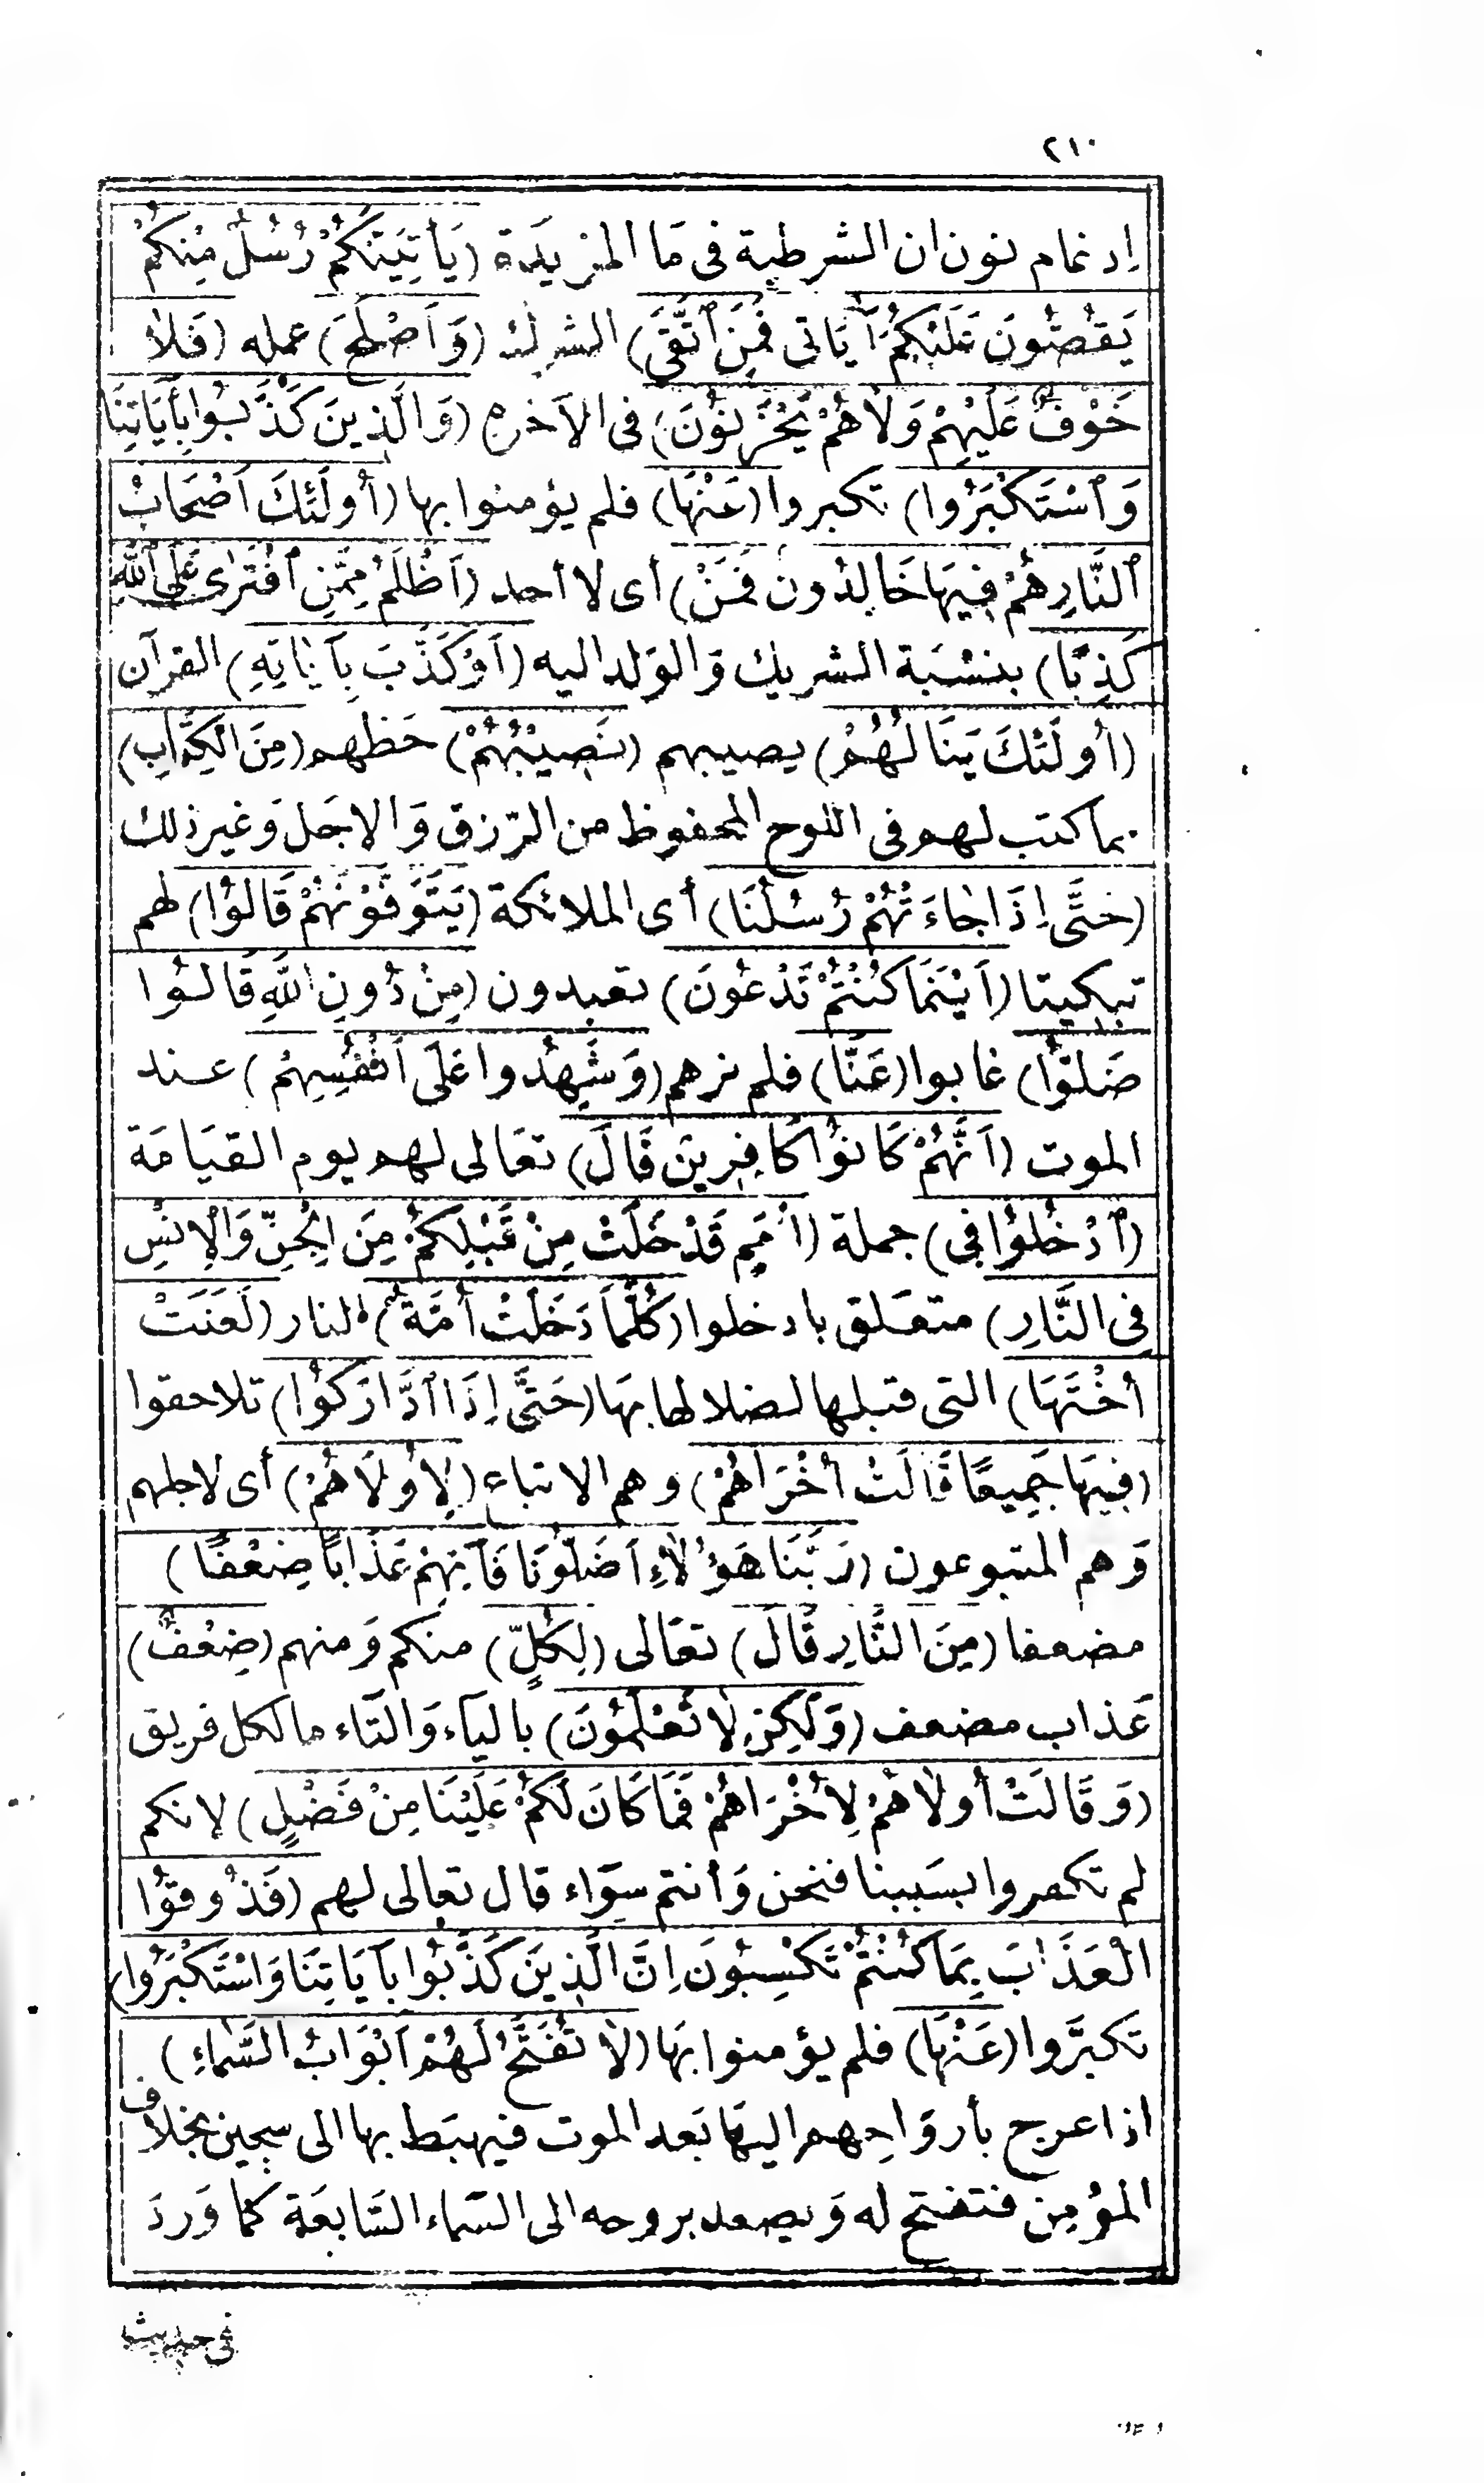 ٢١٠
إدغام نون ان الشرطية فى مَا المزيدَة (يَأتِيَنَّكُمْ رُسُلٌ مِنكُمْ
يَقُصُّونَ عَلَيْكُمْ آيَاتى فَمَنِ ٱتَّقَىَ) الشرك (وَأَصْلَحَ) عمله (فَلاَ
خَوْفٌ عَلَيْهِمْ وَلاَ هُمْ يَحْزَنُونَ) فى الآخرة (وَالَّذِينَ كَذَّبُوا بِآيَاتِنَا
وَٱسْتَكْبَرُوا) تكبروا (عَنْهَا) فلم يؤمنوا بها (أُولَئِكَ أَصْحَابُ
ٱلنَّارِ هُمْ فِيهَا خَالِدُونَ فَمَنْ) أى لا أحد (أَظْلَمُ مِمَّنِ ٱفْتَرٰى عَلَى ٱللَّهِ
كَذِبًا) بنسْبَة الشريك وَالوَلد اليه (أَوْ كَذَّبَ بِآيَاتِهِ) القرآن
(أُولَئِكَ يَنَالُهُمْ) يصيبهم (نَصِيْبُهُمْ) حَظهم (مِنَ الْكِتَابِ)
بما كتب لهم فى اللوح المحفوظ من الرّزق وَالاجَل وَغير ذلك
(حَتَّى إِذَا جَاءَتْهُمْ رُسُلُنَا) أى الملائكة (يَتَوَفَّوْنَهُمْ قَالُوْا) لهم
تبكيتا (أَيْنَمَا كُنْتُمْ تَدْعُونَ) تعبدون (مِنْ دُونِ اللَّهِ قَالُوا
ضَلّوْا) غابوا (عَنَّا) فلم نرهم (وَشَهِدُوا عَلَى أَنْفُسِهِمْ) عند
الموت (أَنَّهُمْ كَانُوْا كَافِرِينَ قَالَ) تعَالى لهم يوم القيَامَة
(ٱدْخُلُوْا فِى) جملة (أُمَمٍ قَدْ خَلَتْ مِنْ قَبْلِكُمْ مِنَ الْجِنِّ وَالْإِنْسِ
فِى النَّارِ) متعَلق بادخلوا (كُلَّمَا دَخَلَتْ أُمَّةٌ) النار (لَعَنَتْ
أُخْتَهَا) التى قبلها لضلالها بهَا (حَتَّى إِذَا ٱدَّارَكُوْا) تلاحقوا
(فِيهَا جَمِيعًا قَالَتْ أُخْرَاهُمْ) وهم الاتباع (لِأُولَاهُمْ) أى لاجلهم
وَهم المتبوعون (رَبَّنَا هَؤُلَاءِ أَضَلّوْنَا فَآتِهِمْ عَذَابًا ضِعْفًا)
مضعفا (مِنَ النَّارِ قَالَ) تعَالى (لِكُلٍّ) منكم وَمنهم (ضِعْفٌ)
عَذاب مضعف (وَلَكِنْ لاَ تَعْلَمُونَ) بالياَء وَالتّاء ما لكل فريق
(وَقَالَتْ أُولاَهُمْ لِأُخْرَاهُمْ فَمَا كَانَ لَكُمْ عَلَيْنَا مِنْ فَضْلٍ) لانكم
لم تكفروا بسَببنا فنحن وَأنتم سوَاء قال تعالى لهم (فَذُوقُوْا
الْعَذَابَ بِمَا كُنْتُمْ تَكْسِبُونَ إِنَّ الَّذِينَ كَذَّبُوا بِآيَاتِنَا وَاسْتَكْبَرُوا)
تَكبَّروا (عَنْهَا) فلم يؤمنوا بهَا (لاَ تُفَتَّحُ لَهُمْ أَبْوَابُ السَّمَاءِ)
اذا عرج بأروَاحِهم اليهَا بَعد الموت فيهبَط بها الى سجين بخلاف
المؤمِن فتفتح له وَيصعد بروحه الى السّماء السَّابعَة كما وَردَ
فى حديث